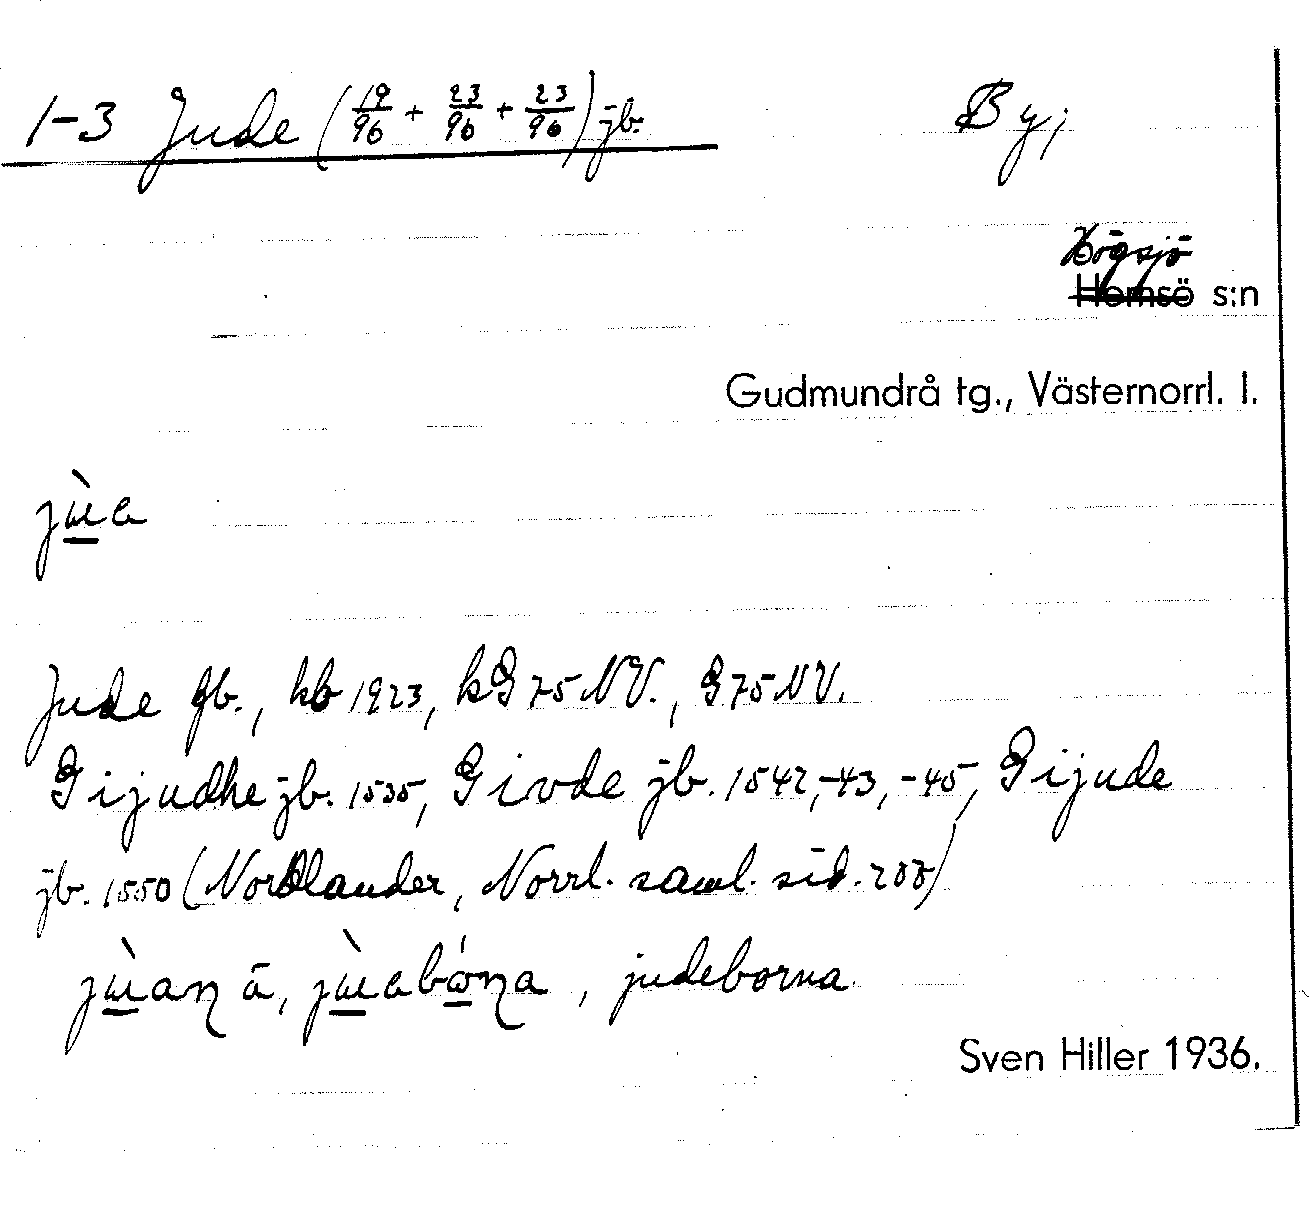 1-3 Jude (19/96 + 23/96 + 23/96) jb. By;
Högsjö
Hemsö s:n
Gudmundrå tg., Västernorrl. l.
jɯ̀a
Jude jb., kb 1923, kG 75 NV., G 75 NV.
Gijudhe jb. 1535, Givde jb. 1542,-43,-45, Gijude
jb. 1550 (Nordlander, Norrl. saml. sid. 200)
jɯ̀aɳ ā, jɯ̀abɷ́ɳa, judeborna
Sven Hiller 1936.